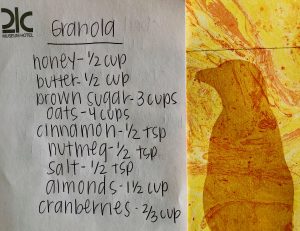 21C
MUSEUM HOTEL
Granola
honey - 1/2 cup
butter - 1/2 cup
brown sugar - 3 cups
oats - 4 cups
cinnamon - 1/2 tsp
nutmeg - 1/2 tsp
salt - 1/2 tsp
almonds - 1 1/2 cup
cranberries - 2/3 cup